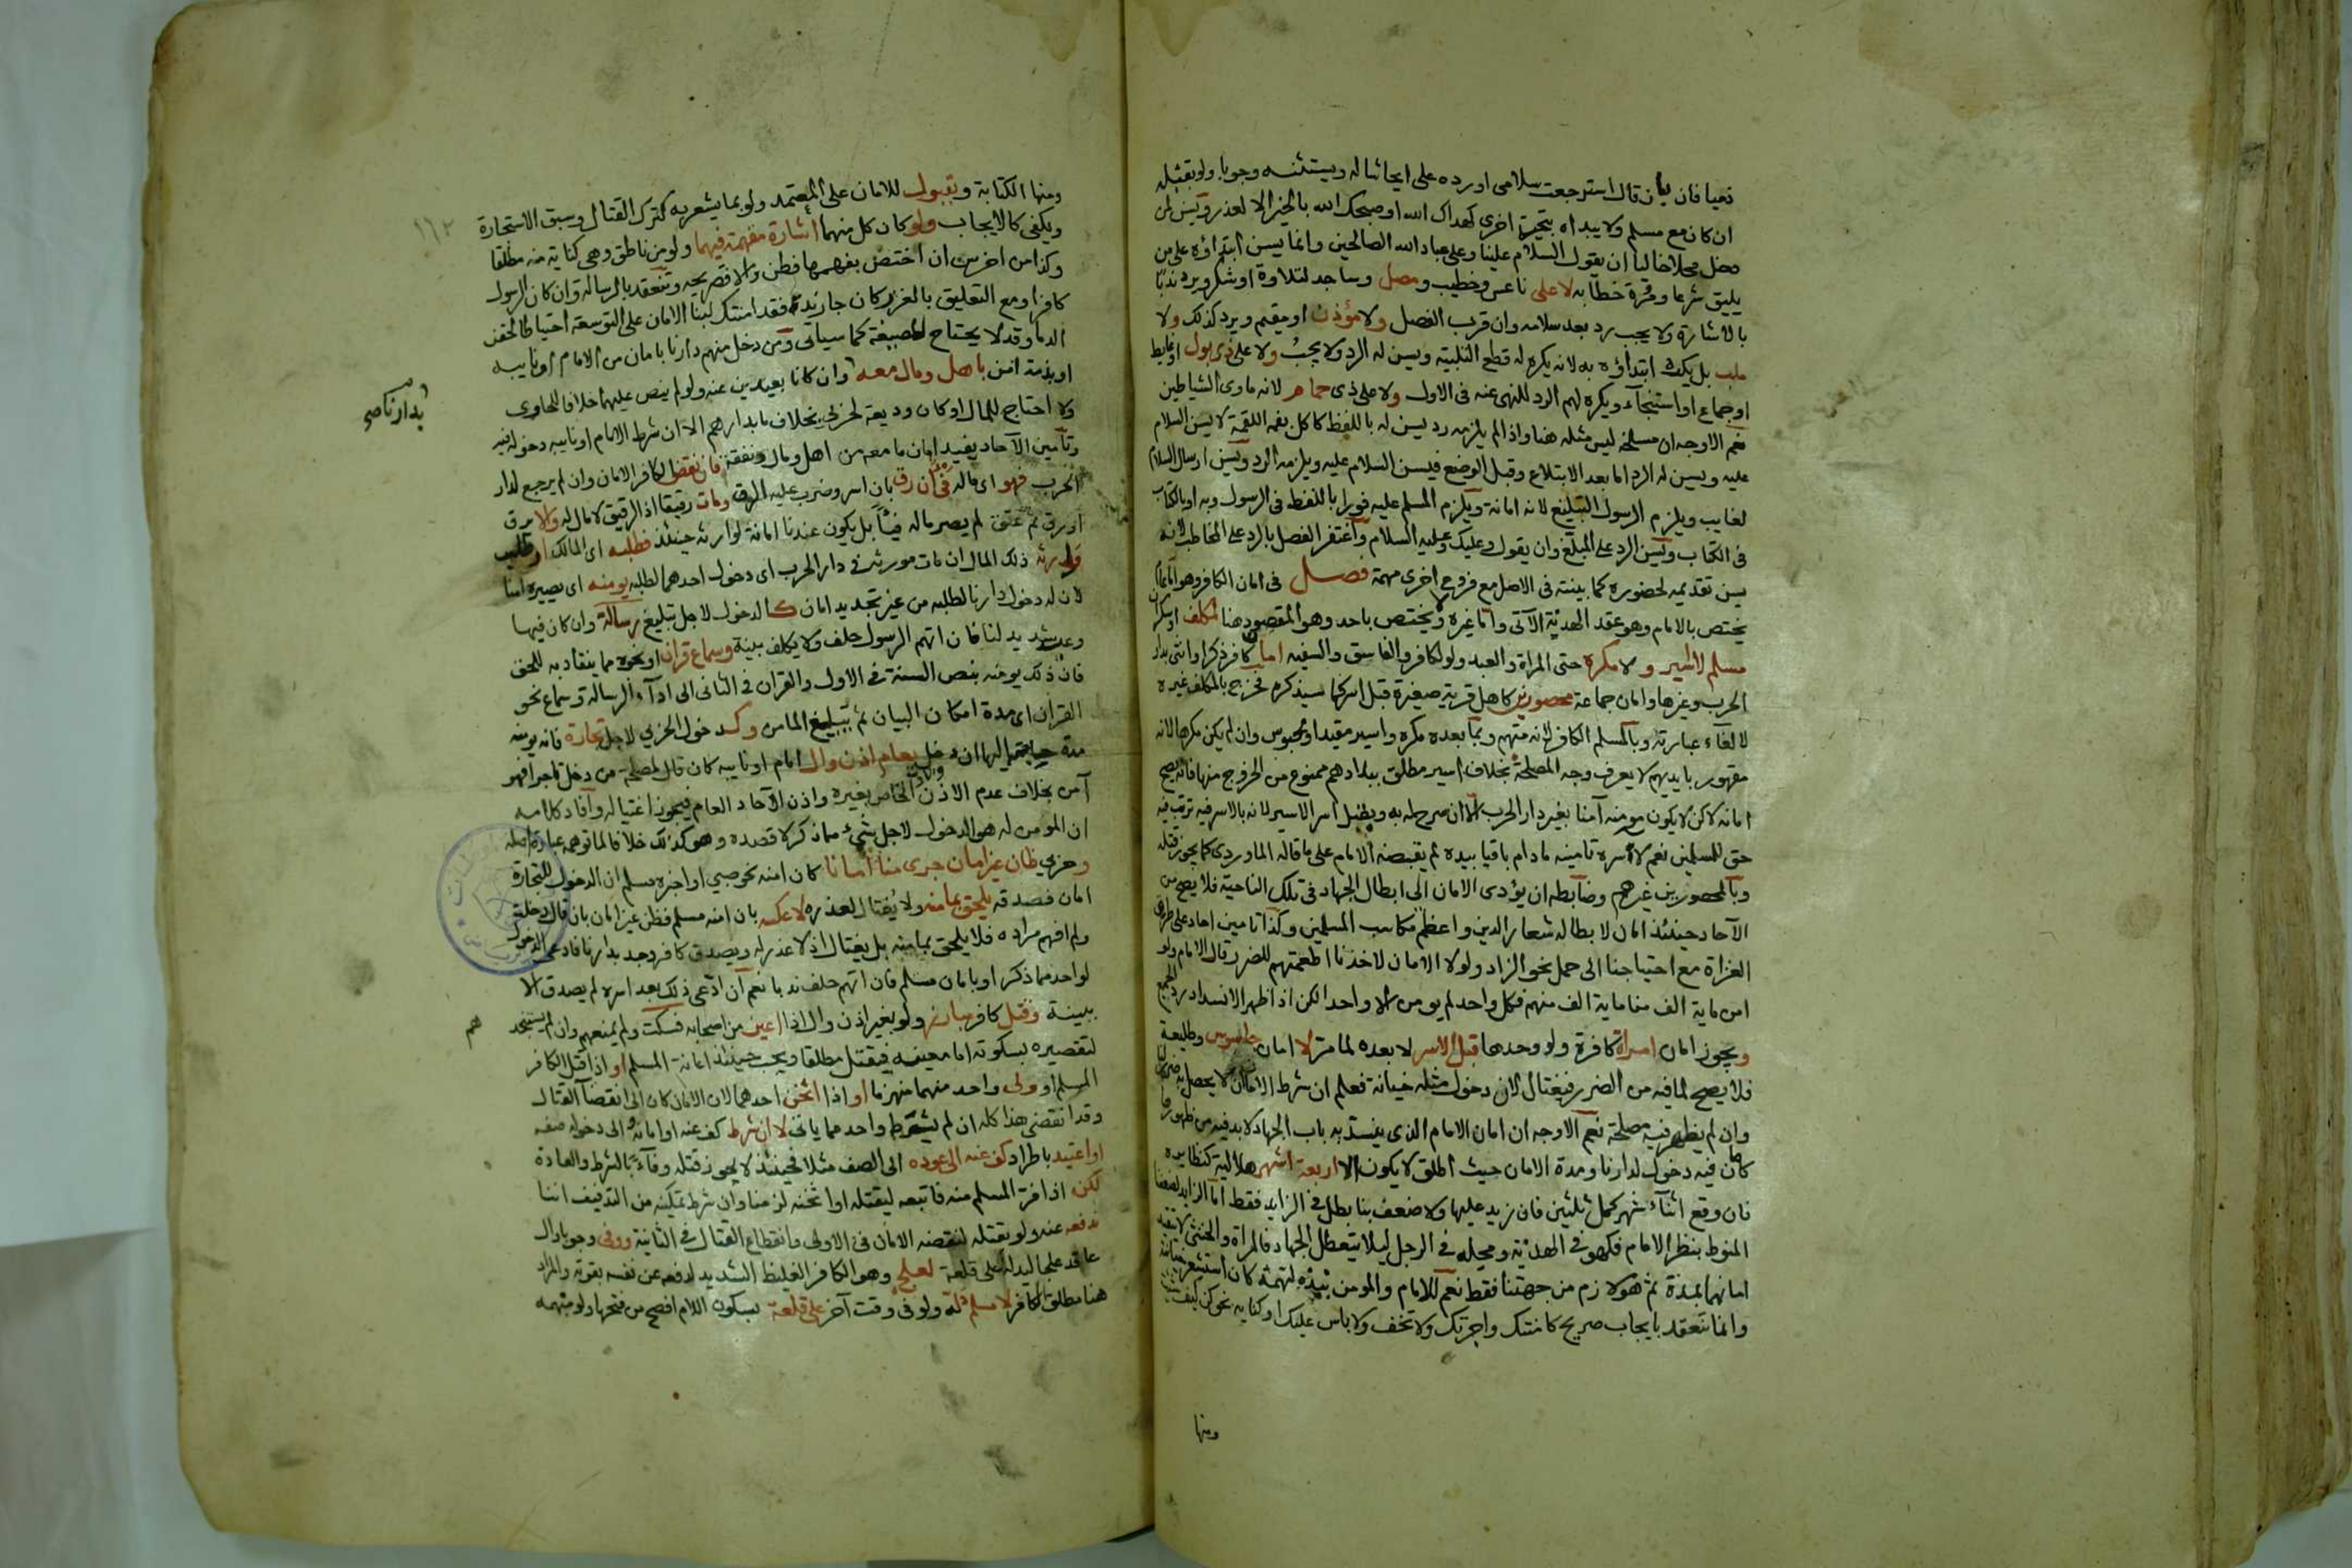 نعيا فان بان قال استرجعت سلامى اورده على ايحاشا له ويستثنه وجوبا ولو بقتله
ان كان مع مسلم ولا يبداه بتحية اخرى كهداك الله او صبحك الله بالخير الا لعذر ويسن لمن
دخل محلا خاليا ان يقول السلام علينا وعلى عباد الله الصالحين وانما يسن ابتداؤه على من
يليق شرعا ومروة خطابه لا على ناعس وخطيب ومصل وساجد لتلاوة او شكر ويرد ندبا
بالاشارة ولا يجب رد بعد سلامه وان قرب الفصل ولا مؤذن او مقيم ويرد كذلك ولا
ملب بل يكره ابتداؤه به لانه يكره له قطع التلبية ويسن له الرد ولا يجب ولا على ذى بول او غايط
او جماع او استنجاء ويكره لهم الرد للنهى عنه فى الاول ولا على ذى حمام لانه ماوى الشياطين
نعم الاوجه ان مسلخه ليس مثله هنا واذا لم يلزمه رد يسن له باللفظ كاكل بفمه اللقمة لا يسن السلام
عليه ويسن له الرد اما بعد الابتلاع وقبل الوضع فيسن السلام عليه ويلزمه الرد ويسن ارسال السلام
لغايب ويلزم الرسول التبليغ لانه امانة ويلزم المسلم عليه فورا باللفظ فى الرسول وبه او بالكتاب
فى الكتاب ويسن الرد على المبلغ وان يقول وعليك وعليه السلام واغتفر الفصل بالرد على المخاطب لانه
يسن تقديمه لحضوره كما بينته فى الاصل مع فروع اخرى مهمة فصل فى امان الكافر وهو اما امان
يختص بالامام وهو عقد الهدنة الآتى واما غيره ولا يختص باحد وهو المقصود هنا لمكلف او سكران
مسلم لا اسير ولا مكره حتى المراة والعبد ولو لكافر والفاسق والسفيه امان كافر ذكر او انثى بدار
الحرب وغيرها وامان جماعة محصورين كاهل قرية صغيرة قبل اسر كما سيذكره فخرج بالمكلف غيره
لالغاء عبارته وبالمسلم الكافر لانه متهم وبما بعده مكره واسير مقيد او محبوس وان لم يكن مكرها لانه
مقهور بايديهم لا يعرف وجه المصلحة بخلاف اسير مطلق ببلادهم ممنوع من الخروج منها فانه يصح
امانه لاكن لا يكون مومنه آمنا بغير دار الحرب الا ان صرح له به ويبطل اسر الاسير لانه بالاسر فيه ترتب فيه
حق للمسلمين نعم لآسره تامينه ما دام باقيا بيده لم يقبضه الامام على ما قاله الماوردى كما يجوز قتله
وبالمحصورين غيرهم وضابطه ان يؤدى الامان الى ابطال الجهاد فى تلك الناحية فلا يصح من
الآحاد حينئذ امان لابطاله شعار الدين واعظم مكاسب المسلمين وكذا تامين احاد على طرق
الغزاة مع احتياجنا الى حمل نحو الزاد ولولا الامان لاخذنا اطعمتهم للضرر قال الامام ولو
امن ماية الف منا ماية الف منهم فكل واحد لم يومن الا واحدا لكن اذا ظهر الانسداد رد الجميع
ويجوز امان امراة كافرة ولو وحدها قبل الاسر لا بعده لما مر لا امان جاسوس وطليعة
فلا يصح لما فيه من الضرر فيغتال لان دخول مثله خيانة فعلم ان شرط الامان لا يحصل به ضررنا
وان لم يظهر فيه مصلحة نعم الاوجه ان امان الامام الذى ينسد به باب الجهاد لا بد فيه من ظهورها
كما كان فيه دخول لدارنا ومدة الامان حيث اطلق لا يكون الا اربعة اشهر هلالية كنظايره
فان وقع اثناء شهر كمل ثلثين فان زيد عليها ولا ضعف بنا بطل فى الزايد فقط اما الزايد لضعفنا
المنوط بنظر الامام فكهو فى الهدنة ومحله فى الرجل ليلا يتعطل الجهاد فالمراة والخنثى لا يتقيد
امانهما بمدة ثم هو لازم من جهتنا فقط نعم للامام والمومن نبذه لتهمة كان استشعر خيانته
وانما ينعقد بايجاب صريح كامنتك واجرتك ولا تخف ولا باس عليك او كناية نحو كن كيف شئت
ومنها
ومنها الكتابة وبقبول للامان على المعتمد ولو بما يشعر به كترك القتال وسبق الاستجارة
ويكفى كالايجاب ولو كان كل منهما اشارة مفهمة فيهما ولو من ناطق وهى كناية منه مطلقا
وكذا من اخرس ان اختص بفهمها فطن والا فصريحه وتنعقد بالرسالة وان كان الرسول
كافرا ومع التعليق بالغرر كان جا زيد فقد امنتك لبنا الامان على التوسعة احتياطا لحقن
الدما وقد لا يحتاج لصيغة كما سياتى ومن دخل منهم دارنا بامان من الامام او نايبه
او بذمة امن باهل ومال معه وان كانا بعيدين عنه ولو لم ينص عليهما خلافا للحاوى
ولا احتاج للمال او كان وديعة لحربي بخلاف ما بدارهم الا ان شرط الامام او نايبه دخوله فيه
بدارنا صح
وتامين الآحاد يفيد امان ما معه من اهل ومال ونفقة فان نقض الكافر الامان وان لم يرجع لدار
الحرب فهو اى ماله فئ ان رق بان اسر وضرب عليه الرق ومات رقيقا اذ الرقيق لا مال له والا يرق
او رق ثم عتق لم يصر ماله فيئا بل يكون عندنا امانة لوارثه حينئذ فطلبه اى المالك او طلب
وارثه ذلك المال ان مات مورثه فى دار الحرب اى دخول احدهما لطلبه يومنه اى يصيره آمنا
لان له دخول دارنا لطلبه من غير تجديد امان كالدخول لاجل تبليغ رسالة وان كان فيها
وعيد شديد لنا فان اتهم الرسول حلف ولا يكلف بينة وسماع قران او نحوه مما ينقاد به للحق
فان ذلك يومنه بنص السنة فى الاول والقران فى الثانى الى اداء الرسالة وسماع نحو
القران اى مدة امكان البيان ثم تبليغ المامن وكدخول الحربي لاجل تجارة فانه يومنه
مدة حاجته اليها ان دخل بعام اذن وال امام او نايبه كان قال لمصلحة من دخل تاجرا فهو
آمن بخلاف عدم الاذن والاذن الخاص بغيره واذن الآحاد العام فيجوز اغتياله وافاد كلامه
ان المومن له هو الدخول لاجل شئ مما ذكر لا قصده وهو كذلك خلافا لما توهمه عبارة اصله
وحربي ظان غير امان جرى منا امانا كان امنه نحو صبي او اخبره مسلم ان الدخول للتجارة
امان فصدقه يلحق بمامنه ولا يغتال لعذره لا عكسه بان امنه مسلم فظن غير امان بان قال دخلت
ولم افهم مراده فلا يلحق بمامنه بل يغتال اذ لا عذر له ويصدق كافر وجد بدارنا فادعى الدخول
لواحد مما ذكر او بامان مسلم فان اتهم حلف ندبا نعم ان ادعى ذلك بعد اسره لم يصدق الا
ببينة وقتل كافر مبارز ولو بغير اذن وال اذا اعين من اصحابه فسكت ولم يمنعهم وان لم يستنجد
هم
لتقصيره بسكوته اما معينه فيقتل مطلقا ويجب حينئذ اعانة المسلم او اذا قتل الكافر
المسلم او ولى واحد منهما منهزما او اذا اثخن احدهما لان الامان كان الى انقضاء القتال
وقد انقضى هذا كله ان لم يشترط واحد مما ياتى لا ان شرط كف عنه او امانه الى دخوله صفه
او اعتيد باطراد كف عنه الى عوده الى الصف مثلا فحينئذ لا يجوز قتله وفاء بالشرط والعادة
لكن اذا فر المسلم منه فاتبعه ليقتله او اثخنه لزمنا وان شرط تمكينه من التذفيف اننا
ندفعه عنه ولو بقتله لنقضه الامان فى الاولى وانقطاع القتال فى الثانية ووفى وجوبا وال
عاقد علجا ليدله على قلعة لعلج وهو الكافر الغليظ الشديد لدفعه عن نفسه بقوته والمراد
هنا مطلق الكافر لا مسلم دله ولو فى وقت آخر على قلعة بسكون اللام افصح من فتحها ولو مبهمه